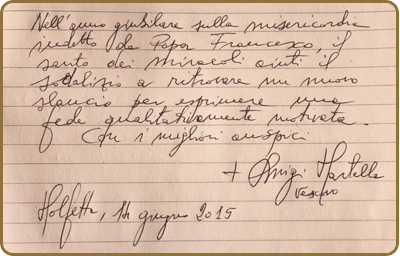 Nell'anno giubilare sulla misericordia
indetto da Papa Francesco, il
santo dei miracoli aiuti il
sodalizio a ritrovare un nuovo
slancio per esprimere una
fede qualitativamente motivata.
Con i migliori auspici
+ Luigi Martella
Vescovo
Molfetta, 14 giugno 2015